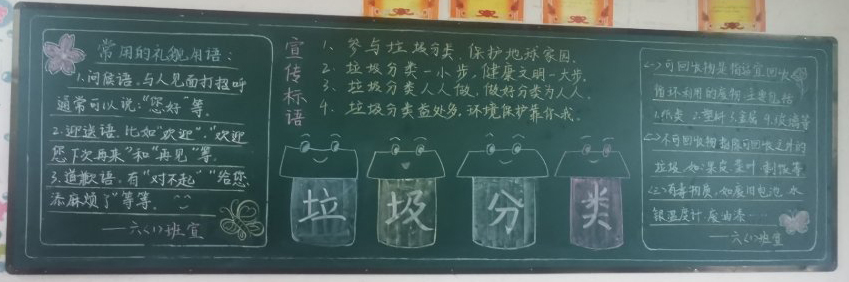 常用的礼貌用语：
1.问候语。与人见面打招呼
通常可以说："您好"等。
2.迎送语。比如"欢迎"."欢迎
您下次再来"和"再见"等。
3.道歉语。有"对不起""给您
添麻烦了"等等。
——六（1）班宣
宣传标语
1、参与垃圾分类、保护地球家园.
2、垃圾分类一小步,健康文明一大步.
3、垃圾分类人人做、做好分类为人人.
4、垃圾分类益处多,环境保护靠你我.
垃 圾 分 类
(一)可回收物是指适宜回收
循环利用的废物.主要包括
1.纸类 2.塑料 3.金属 4.玻璃等
(二)不可回收物指除可回收之外的
垃圾.如:果皮.菜叶.剩饭等
(三)有毒物质.如废旧电池.水
银温度计.废油漆…
——六（1）班宣